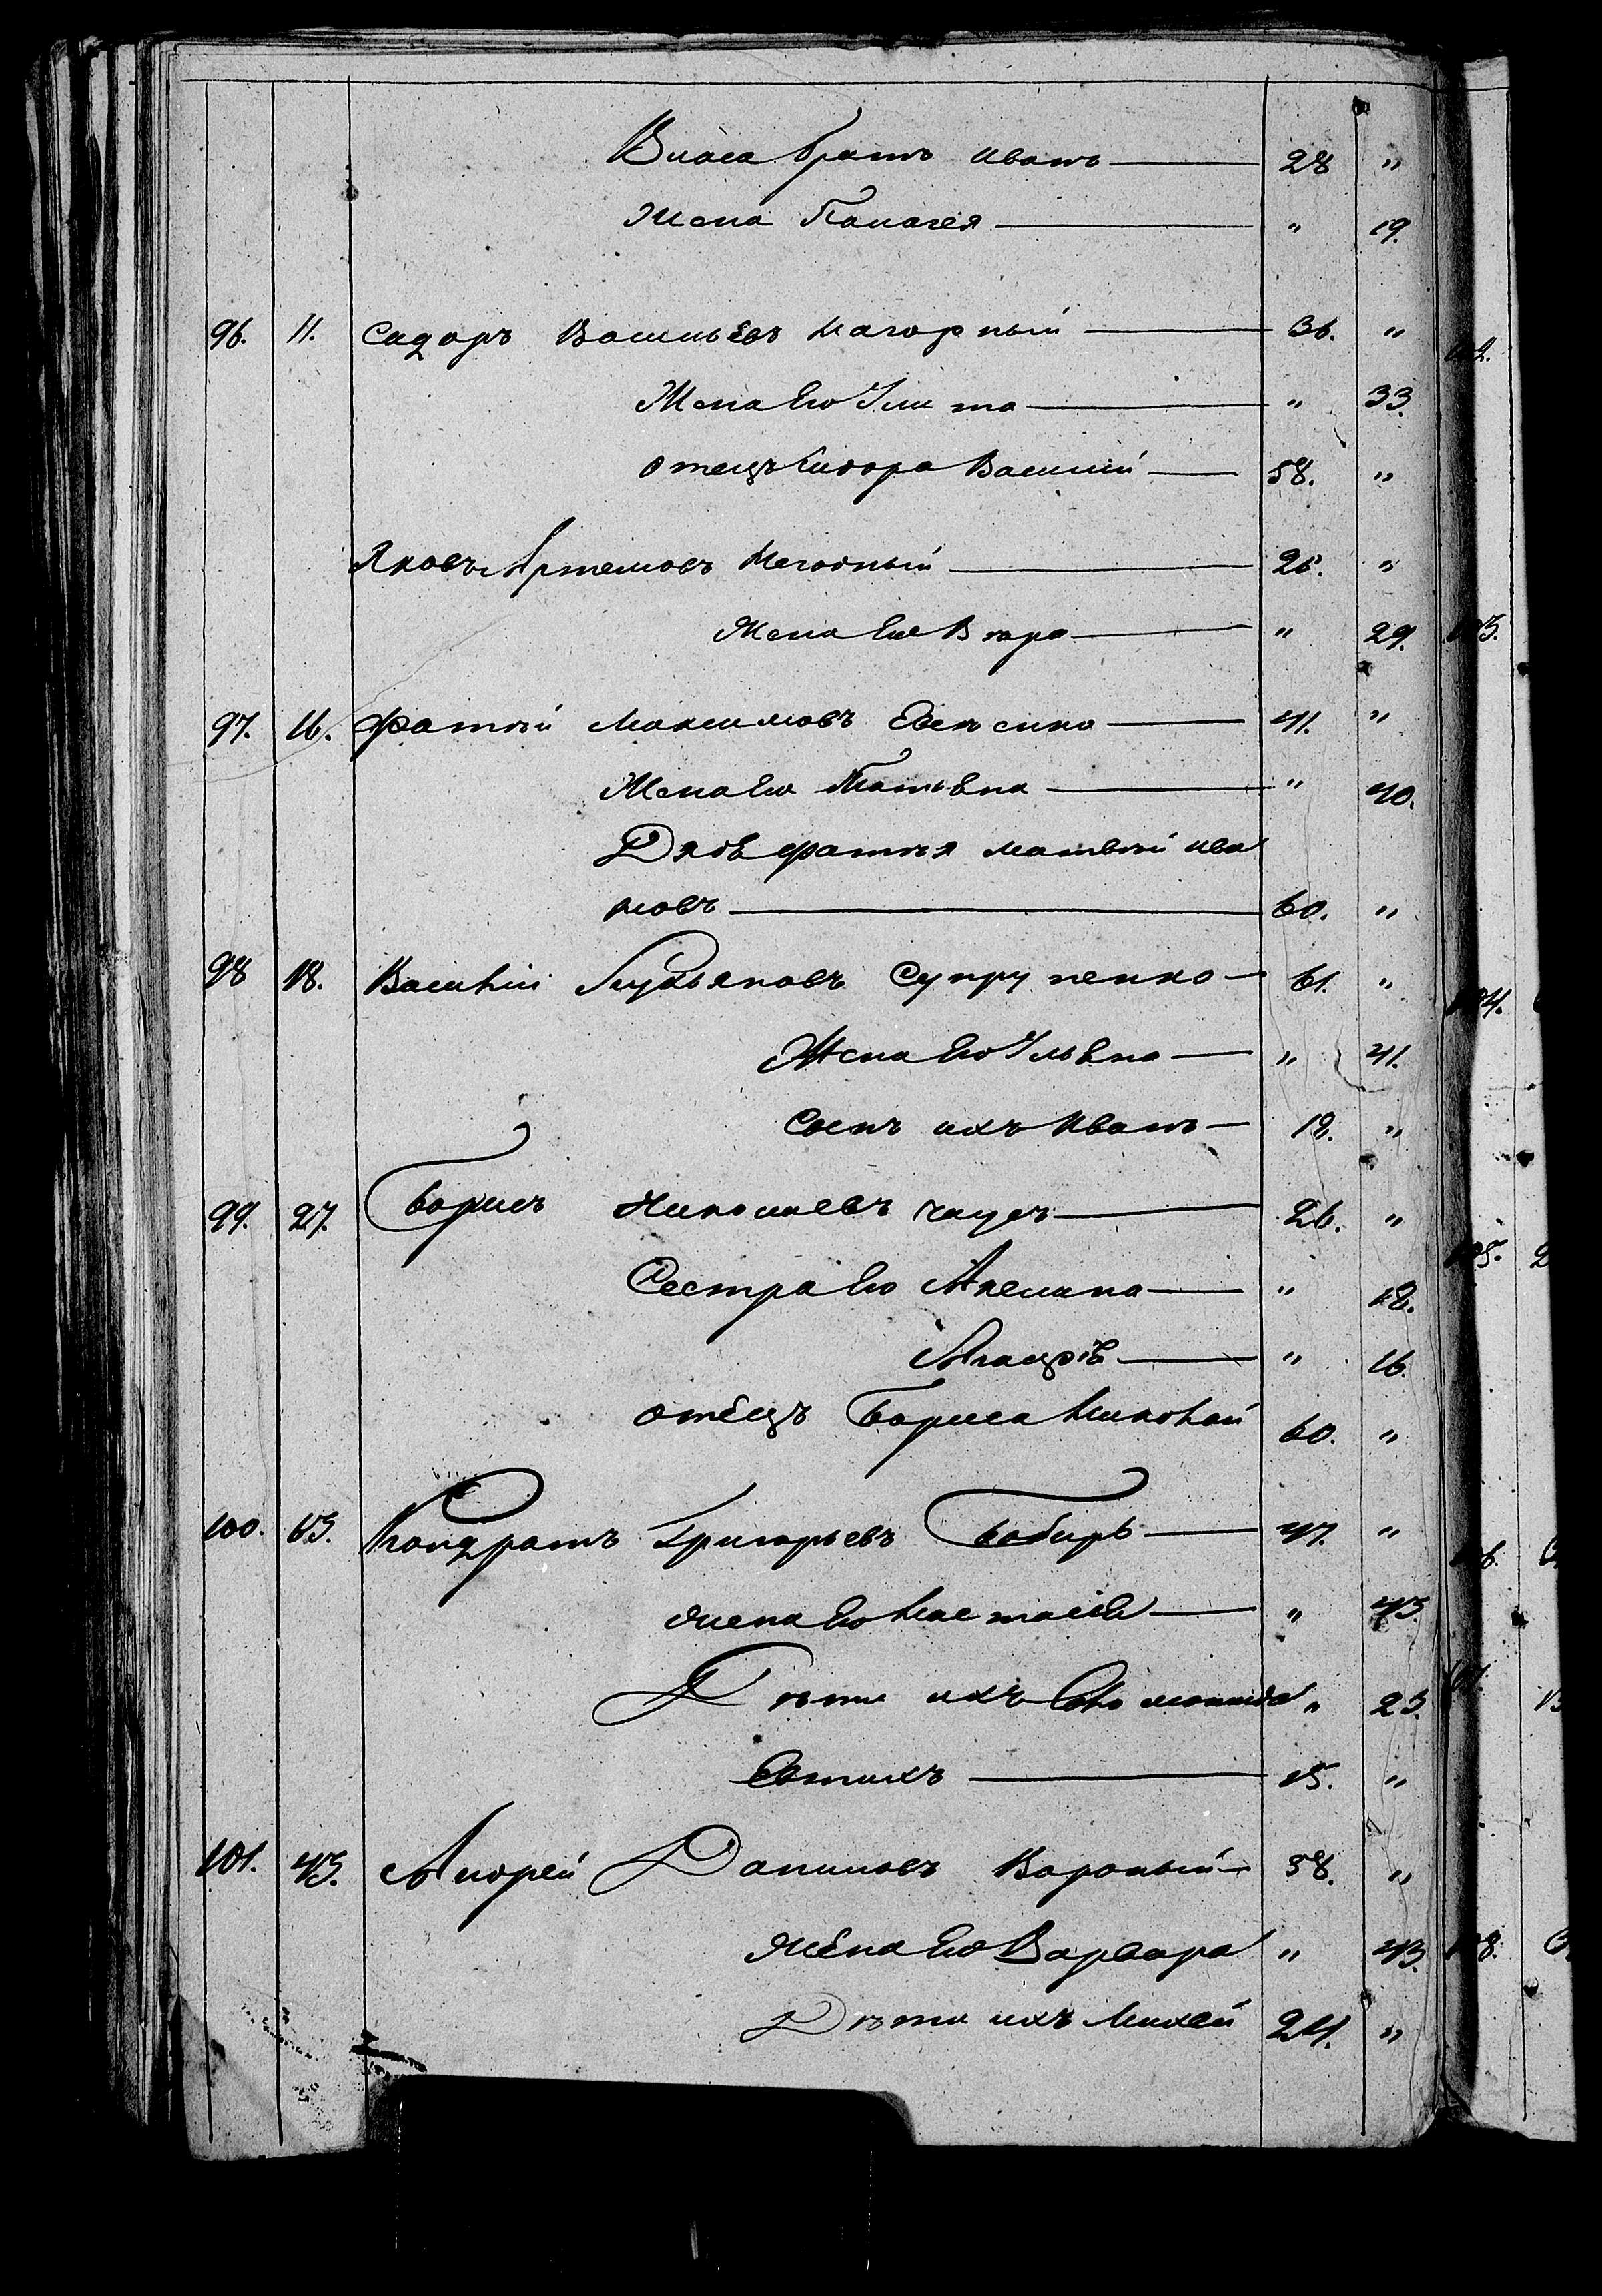 Власа братъ Иванъ — 28 "
Жена Палагея — " 19.
96. 11. Сидоръ Васильевъ Нагорный — 36. "
Жена Его Улита — " 33.
отецъ Сидора Василий — 58. "
Яковъ Артемовъ Нагорный — 26. "
Жена Его Вѣра — " 29.
97. 16. Фатѣй Максимовъ — 41. "
Жена Его Татьяна — " 40.
Дядя Фатѣя Матвѣй Ива
новъ — 60. "
98 18. Василий Лукьяновъ Супруненко — 61. "
Жена Его Ульяна — " 41.
Сынъ ихъ Иванъ — 19. "
99. 27. Борисъ Николаевъ — 26. "
Сестра Его Акелина — " 18.
— " 16.
отецъ Бориса Николай 60. "
100. 63. Кондратъ Григорьевъ Бобырь — 47. "
жена Его Настасія — " 43.
Дѣти ихъ Соломонида " 23.
Евтихъ — 15. "
101. 43. Андрей Даниловъ Вороный — 58. "
жена Его Варвара " 43.
Дѣти ихъ Михей 24. "